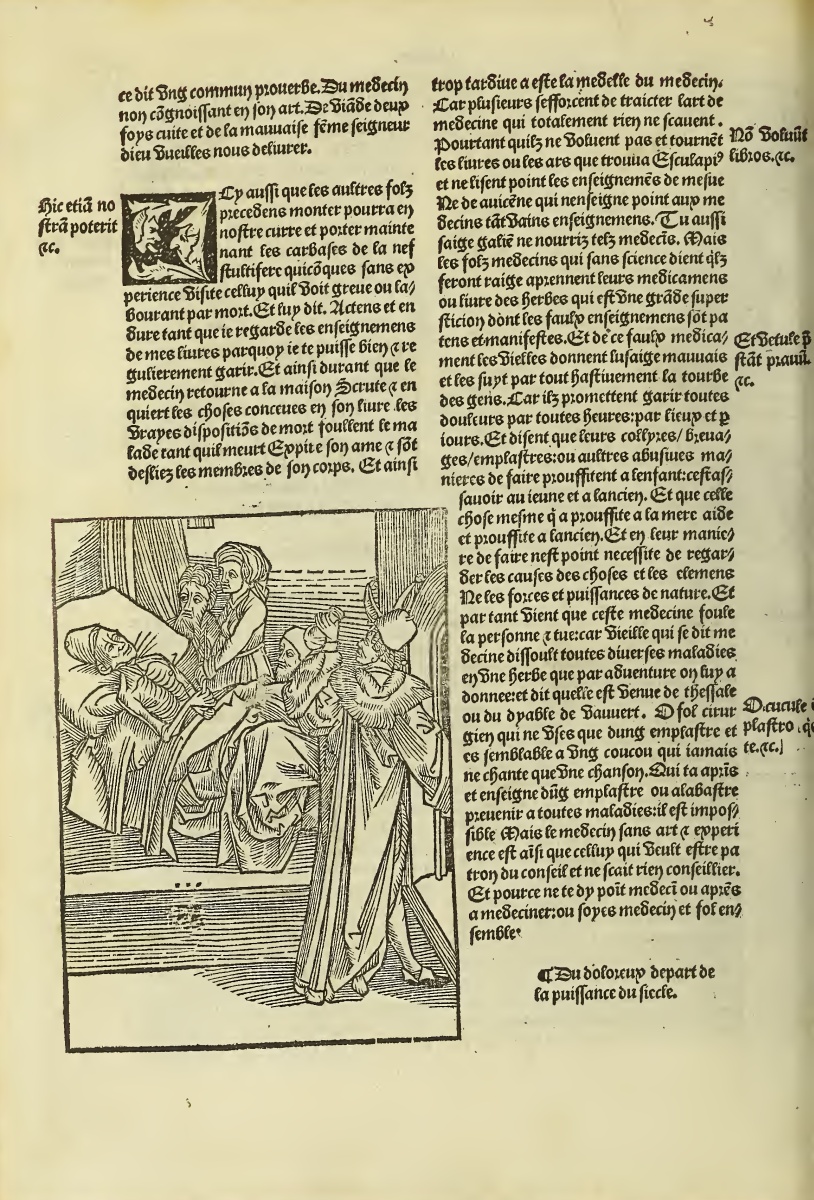 ce dit vng commun prouerbe. Du medecin
non cõgnoissant en son art. De viãde deux
foys cuite et de la mauuaise fẽme seigneur
dieu vueilles nous deliurer.
Hic etiã no
strã poterit
⁊c.
ICy aussi que les aultres folz
precedens monter pourra en
nostre curre et porter mainte
nant les carbases de la nef
stultifere quicõques sans ex
perience visite celluy quil voit greue ou la/
bourant par mort. Et luy dit. Actens et en
dure tant que ie regarde les enseignemens
de mes liures parquoy ie te puisse bien ⁊ re
gulierement garir. Et ainsi durant que le
medecin retourne a la maison Scrute ⁊ en
quiert les choses conceues en son liure les
vrayes dispositiõs de mort foullent le ma
lade tant quil meurt Expire son ame ⁊ sõt
desliez les membres de son corps. Et ainsi
trop tardiue a este la medelle du medecin.
Car plusieurs sefforcent de traicter lart de
medecine qui totalement rien ne scauent.
Pourtant quilz ne voluent pas et tournẽt
les liures ou les ars que trouua Esculapiꝰ
et ne lisent point les enseignemẽs de mesue
Ne de auicẽne qui nenseigne point aux me
decins tãt vains enseignemens. Tu aussi
saige galiẽ ne nourriz telz medecĩs. Mais
les folz medecins qui sans science dient qlz
feront raige aprennent leurs medicamens
ou liure des herbes qui est vne grãde super
sticion dõt les faulx enseignemens sõt pa
tens et manifestes. Et de ce faulx medica/
ment les vielles donnent lusaige mauuais
et les suyt par tout hastiuement la tourbe
des gens. Car ilz promettent garir toutes
douleurs par toutes heures: par lieux et p
iours. Et disent que leurs collyres/ breua/
ges/ emplastres: ou aultres abusiues ma/
nieres de faire prouffitent a lenfant: cestas/
sauoir au ieune et a lancien. Et que celle
chose mesme q̃ a prouffite a la mere aide
et prouffite a lancien. Et en leur manie/
re de faire nest point necessite de regar/
der les causes des choses et les elemens
Ne les forces et puissances de nature. Et
par tant vient que ceste medecine foule
la personne ⁊ tue: car vieille qui se dit me
decine dissoult toutes diuerses maladies
en vne herbe que par aduenture on luy a
donnee: et dit quelle est venue de thessale
ou du dyable de vauuert. O fol cirur
gien qui ne vses que dung emplastre et
es semblable a vng coucou qui iamais
ne chante que vne chanson. Qui ta apris
et enseigne dũg emplastre ou alabastre
preuenir a toutes maladies: il est impos/
sible Mais le medecin sans art ⁊ experi
ence est aĩsi que celluy qui veult estre pa
tron du conseil et ne scait rien conseillier.
Et pource ne te dy poĩt medecĩ ou aprẽs
a mediciner: ou soyes medecin et fol en/
semble.
Nõ voluũt
libros. ⁊c.
Et vetule p
stãt prauũ.
⁊c.
O cucule
plastro
te. ⁊c.
¶ Du doloreux depart de
la puissance du siecle.